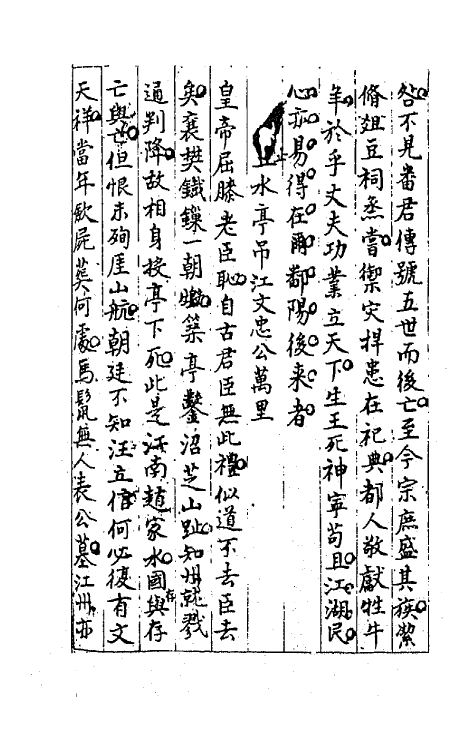 咎不見番君傳號五世而後亡至今宗庶盛其族縈
脩俎豆祠烝嘗禦灾捍患在祀典都人敬獻牲牛
羊於乎丈夫功業立天下生王死神寧苟且江湖民
心亦易得在爾鄱陽後来者
止水亭吊江文忠公萬里
皇帝屈膝老臣恥自古君臣無此禮似道不去臣去
矣襄樊鐵鏁一朝築亭鑿沼芝山趾知州就戮
通判降故相身授亭下死此是江南趙家水國與存
亡與亡但恨未殉厓山航朝廷不知汪立信何必復有文
天祥當年斂屍葬何處馬鬛無人表公墓江州亦